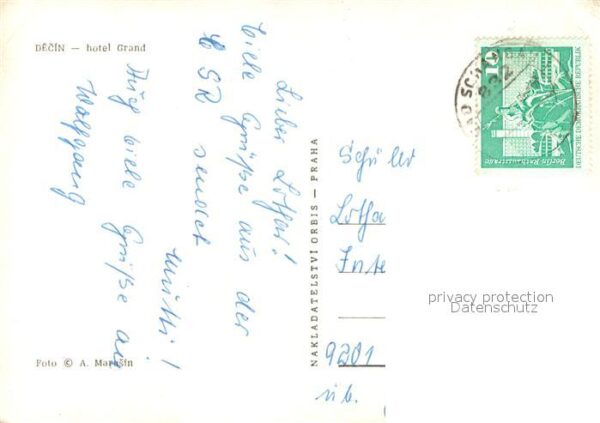 DĚČÍN — hotel Grand
Lieber Lothar!
Viele Grüße aus der
ČSSR sendet
Mutti!
Auch viele Grüße an
Wolfgang
Foto © A. Marušin
NAKLADATELSTVÍ ORBIS — PRAHA
Schüler
Lotha
Inte
9201
üb.
BAD SCHANDAU
832
10
Berlin Rathausstraße
DEUTSCHE DEMOKRATISCHE REPUBLIK
privacy protection
Datenschutz